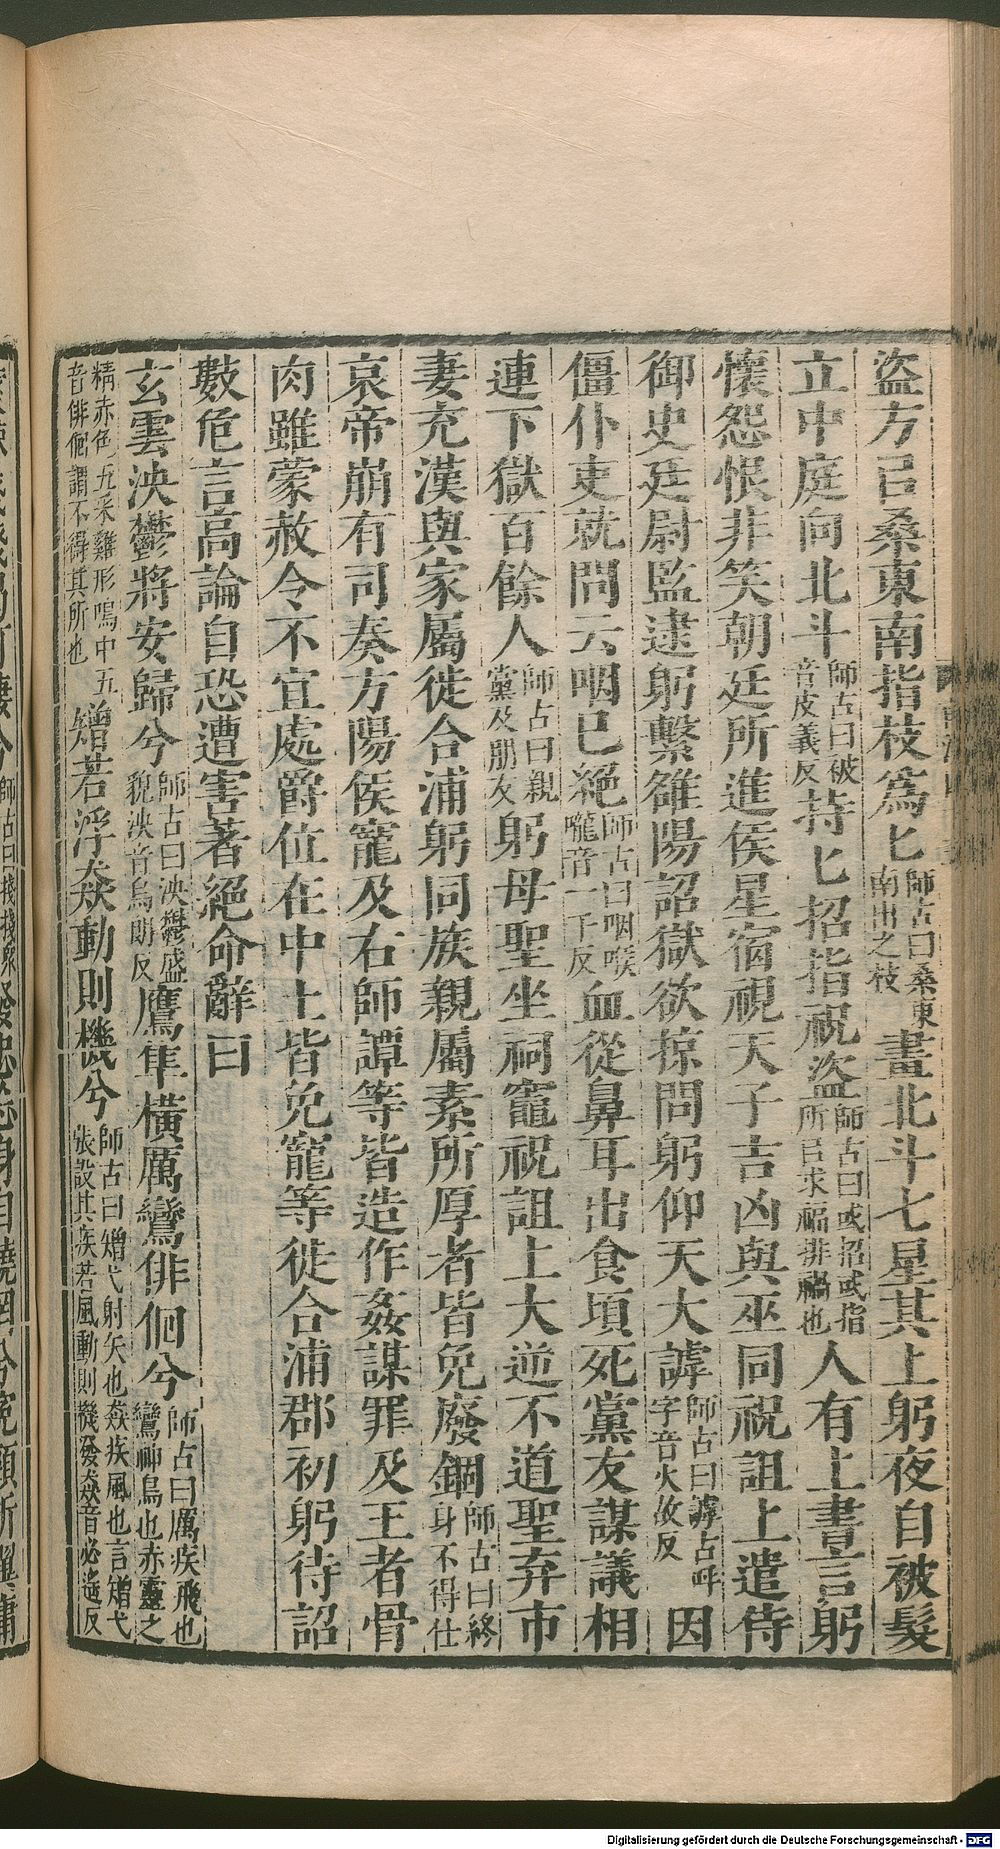 盜方㠯桑東南指枝爲匕師古曰桑東南出之枝畫北斗七星其上躬夜自被髮
立中庭向北斗師古曰被音皮義反持匕招指祝盜師古曰或招或指所㠯求福排禍也人有上書言躬
懷怨恨非笑朝廷所進侯星宿視天子吉凶與巫同祝詛上遣侍
御史廷尉監逮躬繫雒陽詔獄欲掠問躬仰天大謼師古曰謼古呼字音火故反因
僵仆吏就問云咽已絕師古曰咽喉嚨音一千反血從鼻耳出食頃死黨友謀議相
連下獄百餘人師古曰親黨及朋友躬母聖坐祠竈祝詛上大逆不道聖弃市
妻充漢與家屬徙合浦躬同族親屬素所厚者皆免廢錮師古曰終身不得仕
哀帝崩有司奏方陽侯寵及右師譚等皆造作姦謀罪及王者骨
肉雖蒙赦令不宜處爵位在中土皆免寵等徙合浦郡初躬待詔
數危言高論自恐遭害著絕命辭曰
玄雲泱鬱將安歸兮師古曰泱鬱盛貌泱音烏朗反鷹隼橫厲鸞俳佪兮師古曰厲疾飛也鸞神鳥也赤靈之
精赤色五采雞形鳴中五音俳佪謂不得其所也矰若浮猋動則機兮師古曰矰弋射矢也猋疾風也言矰弋張設其疾若風動則機發猋音必遙反
Digitalisierung gefördert durch die Deutsche Forschungsgemeinschaft - DFG